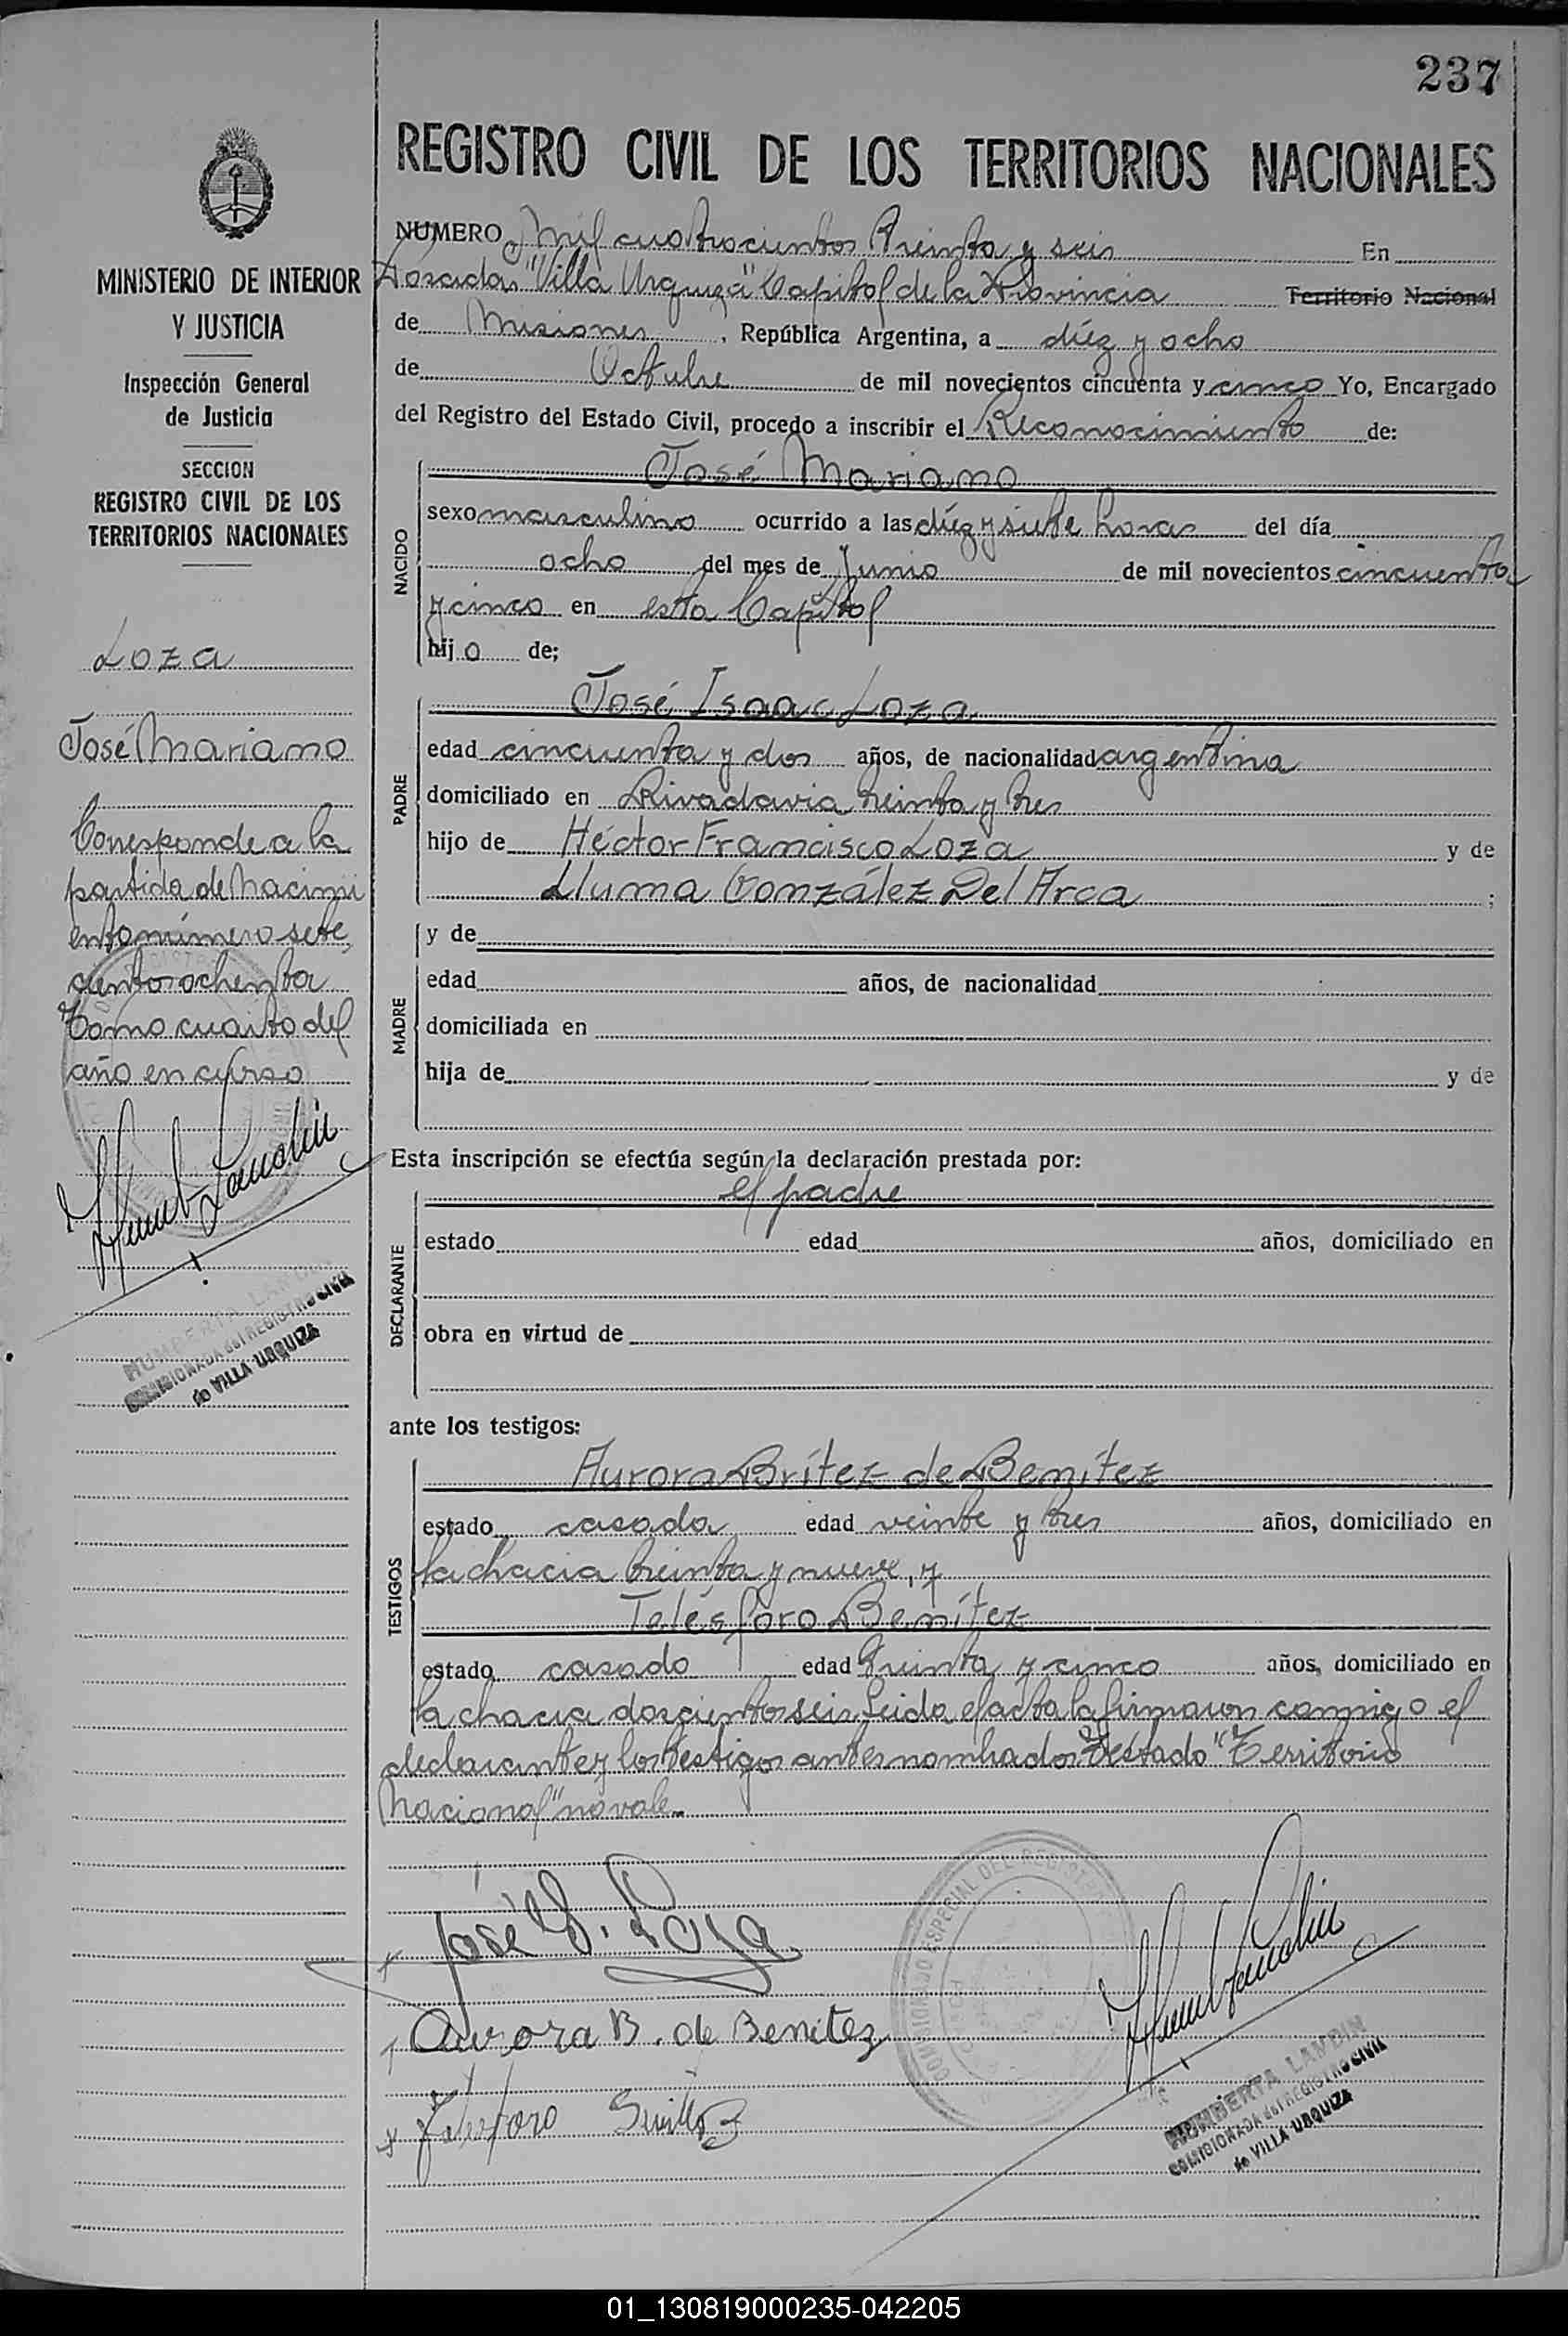 237
REGISTRO CIVIL DE LOS TERRITORIOS NACIONALES
MINISTERIO DE INTERIOR
Y JUSTICIA
Inspección General
de Justicia
SECCION
REGISTRO CIVIL DE LOS
TERRITORIOS NACIONALES
Loza
José Mariano
Corresponde a la
partida de nacimi
ento número sete
cientos ochenta
Tomo cuarto del
año en curso
HUMBERTA LANDIN
COMISIONADA del REGISTRO CIVIL
de VILLA URQUIZA
NUMERO mil cuatrocientos treinta y seis En
Posadas "Villa Urquiza" Capital de la Provincia Territorio Nacional
de Misiones, República Argentina, a diez y ocho
de Octubre de mil novecientos cincuenta y cinco Yo, Encargado
del Registro del Estado Civil, procedo a inscribir el Reconocimiento de:
NACIDO
José Mariano
sexo masculino ocurrido a las diez y siete horas del día
ocho del mes de Junio de mil novecientos cincuenta
y cinco en esta Capital
hijo de;
PADRE
José Isaac Loza
edad cincuenta y dos años, de nacionalidad argentina
domiciliado en Rivadavia treinta y tres
hijo de Héctor Francisco Loza y de
Lluma González Del Arca ;
MADRE
y de
edad años, de nacionalidad
domiciliada en
hija de y de
Esta inscripción se efectúa según la declaración prestada por:
DECLARANTE
el padre
estado edad años, domiciliado en
obra en virtud de
ante los testigos:
TESTIGOS
Aurora Brítez de Benítez
estado casada edad veinte y tres años, domiciliado en
la chacra treinta y nueve, y
Telésforo Benítez
estado casado edad treinta y cinco años, domiciliado en
la chacra doscientos seis. Leida el acta la firmaron conmigo el
declarante y los testigos antes nombrados Testado "Territorio
Nacional" no vale.
José I. Loza
Aurora B. de Benitez
Telesforo
COMISIONADO ESPECIAL DEL REGISTRO
HUMBERTA LANDIN
COMISIONADA del REGISTRO CIVIL
de VILLA URQUIZA
01_130819000235-042205